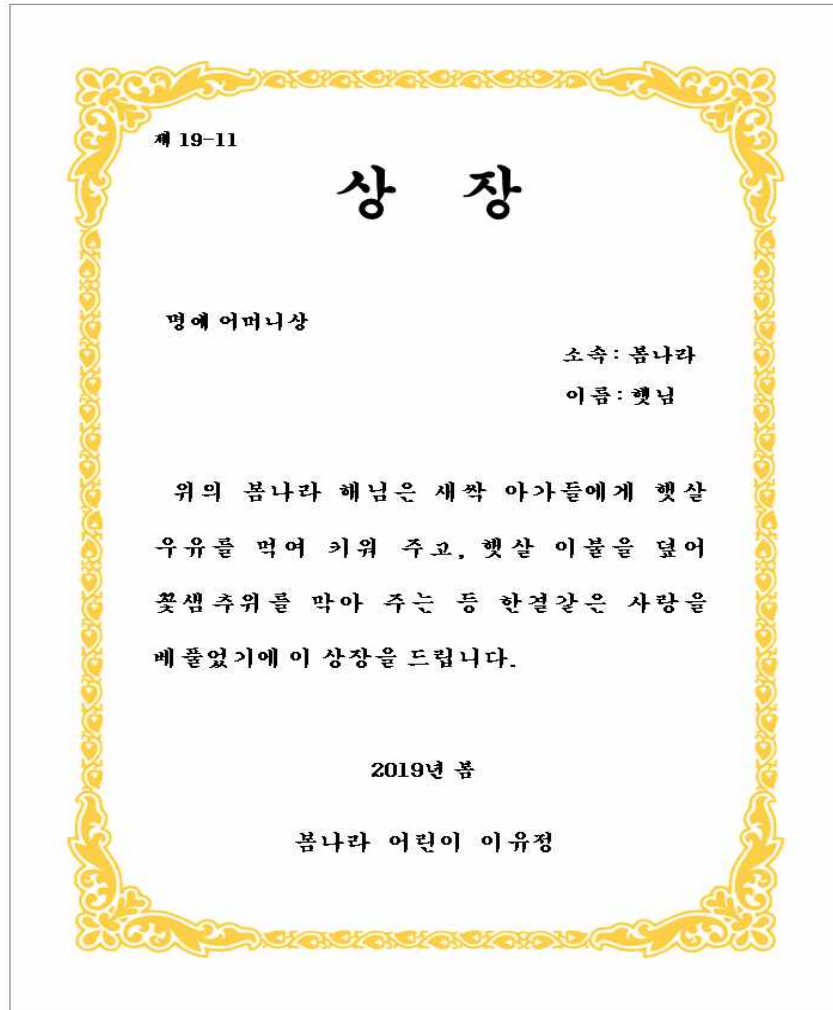 제 19-11
상 장
명예 어머니상
소속: 봄나라
이름: 햇님
위의 봄나라 해님은 새싹 아가들에게 햇살
우유를 먹여 키워 주고, 햇살 이불을 덮어
꽃샘추위를 막아 주는 등 한결같은 사랑을
베풀었기에 이 상장을 드립니다.
2019년 봄
봄나라 어린이 이유정